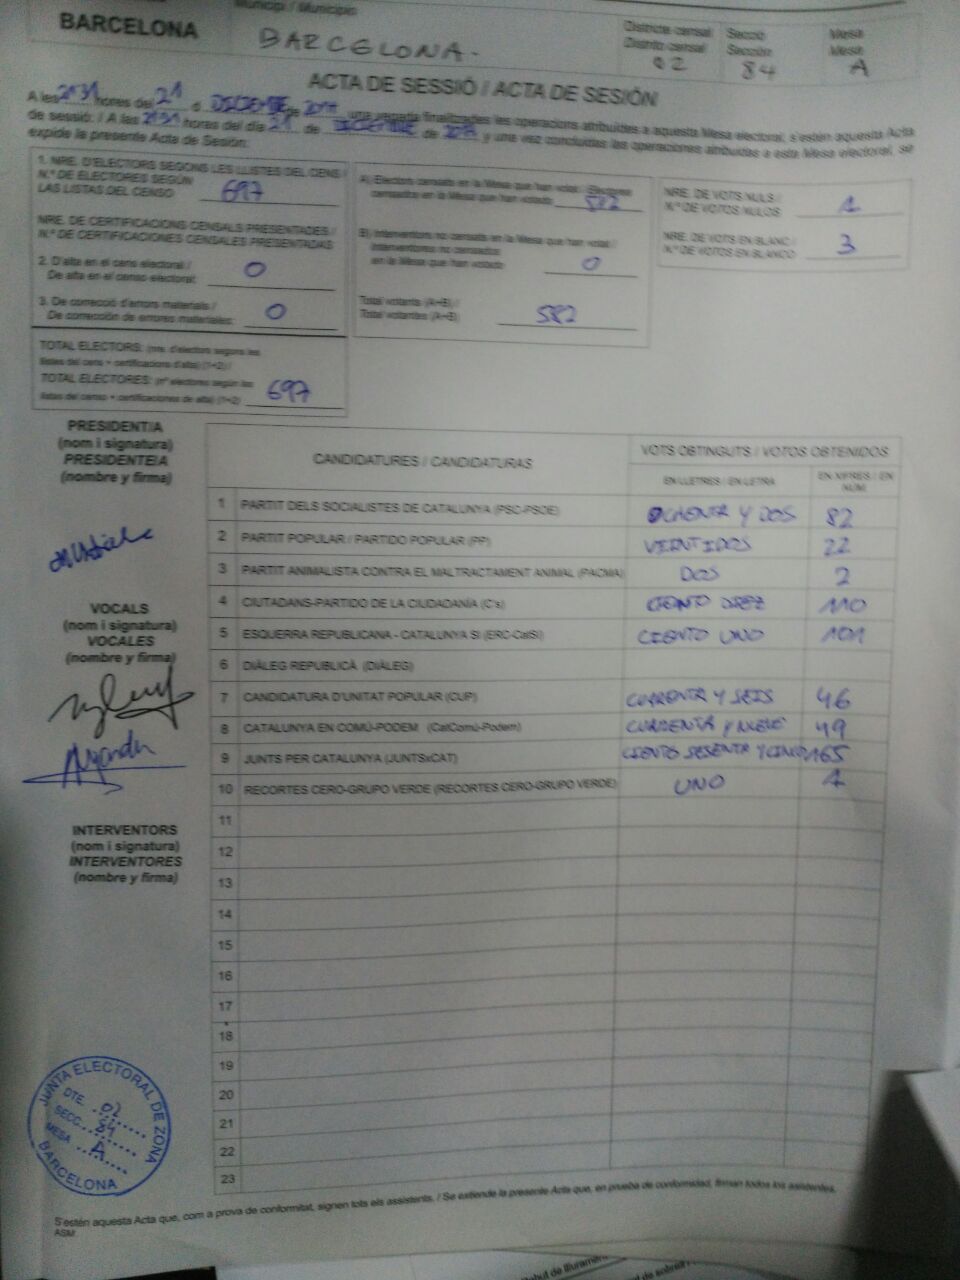 Municipi / Municipio
BARCELONA
BARCELONA.
Districte censal
Distrito censal
02
Secció
Sección
84
Mesa
Mesa
A
ACTA DE SESSIÓ / ACTA DE SESIÓN
A les 21'31 hores del 21 d DICIEMBRE de 2017, una vegada finalitzades les operacions atribuïdes a aquesta Mesa electoral, s'estén aquesta Acta
de sessió: / A las 21'31 horas del día 21 de DICIEMBRE de 2017 y una vez concluidas las operaciones atribuidas a esta Mesa electoral, se
expide la presente Acta de Sesión:
1. NRE. D'ELECTORS SEGONS LES LLISTES DEL CENS /
N.º DE ELECTORES SEGÚN
LAS LISTAS DEL CENSO 697
NRE. DE CERTIFICACIONS CENSALS PRESENTADES /
N.º DE CERTIFICACIONES CENSALES PRESENTADAS
2. D'alta en el cens electoral /
De alta en el censo electoral: 0
3. De correcció d'errors materials /
De corrección de errores materiales: 0
TOTAL ELECTORS: (nre. d'electors segons les
llistes del cens + certificacions d'alta) (1+2) /
TOTAL ELECTORES: (nº electores según las
listas del censo + certificaciones de alta) (1+2) 697
A) Electors censats en la Mesa que han votat / Electores
censados en la Mesa que han votado 582
B) Interventors no censats en la Mesa que han votat /
Interventores no censados
en la Mesa que han votado 0
Total votants (A+B) /
Total votantes (A+B) 582
NRE. DE VOTS NULS /
N.º DE VOTOS NULOS 1
NRE. DE VOTS EN BLANC /
N.º DE VOTOS EN BLANCO 3
PRESIDENT/A
(nom i signatura)
PRESIDENTE/A
(nombre y firma)
VOCALS
(nom i signatura)
VOCALES
(nombre y firma)
INTERVENTORS
(nom i signatura)
INTERVENTORES
(nombre y firma)
CANDIDATURES / CANDIDATURAS
VOTS OBTINGUTS / VOTOS OBTENIDOS
EN LLETRES / EN LETRA
EN XIFRES / EN
NÚM.
1 PARTIT DELS SOCIALISTES DE CATALUNYA (PSC-PSOE) OCHENTA Y DOS 82
2 PARTIT POPULAR / PARTIDO POPULAR (PP) VEINTIDOS 22
3 PARTIT ANIMALISTA CONTRA EL MALTRACTAMENT ANIMAL (PACMA) DOS 2
4 CIUTADANS-PARTIDO DE LA CIUDADANÍA (C's) CIENTO DIEZ 110
5 ESQUERRA REPUBLICANA - CATALUNYA SÍ (ERC-CatSí) CIENTO UNO 101
6 DIÀLEG REPUBLICÀ (DIÀLEG)
7 CANDIDATURA D'UNITAT POPULAR (CUP) CUARENTA Y SEIS 46
8 CATALUNYA EN COMÚ-PODEM (CatComú-Podem) CUARENTA Y NUEVE 49
9 JUNTS PER CATALUNYA (JUNTSxCAT) CIENTO SESENTA Y CINCO 165
10 RECORTES CERO-GRUPO VERDE (RECORTES CERO-GRUPO VERDE) UNO 1
11
12
13
14
15
16
17
18
19
20
21
22
23
JUNTA ELECTORAL DE ZONA
DTE. 02
SECC. 84
MESA A
BARCELONA
S'estén aquesta Acta que, com a prova de conformitat, signen tots els assistents. / Se extiende la presente Acta que, en prueba de conformidad, firman todos los asistentes.
ASM